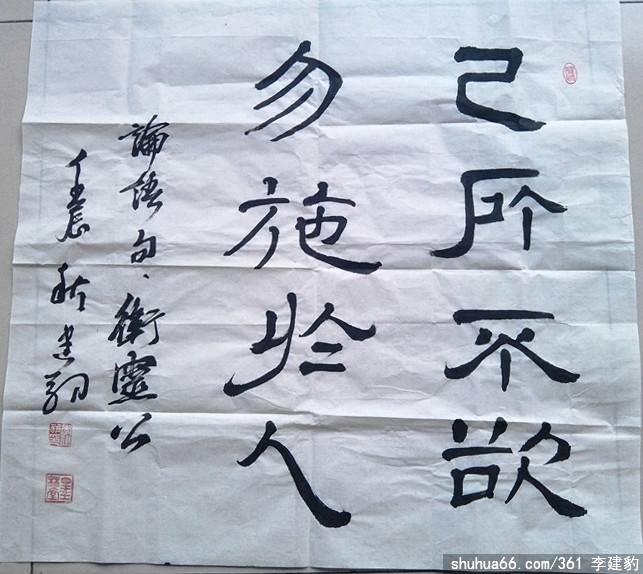 己所不欲
勿施於人
論語句、衛靈公
壬辰秋建豹
shuhua66.com/361 李建豹